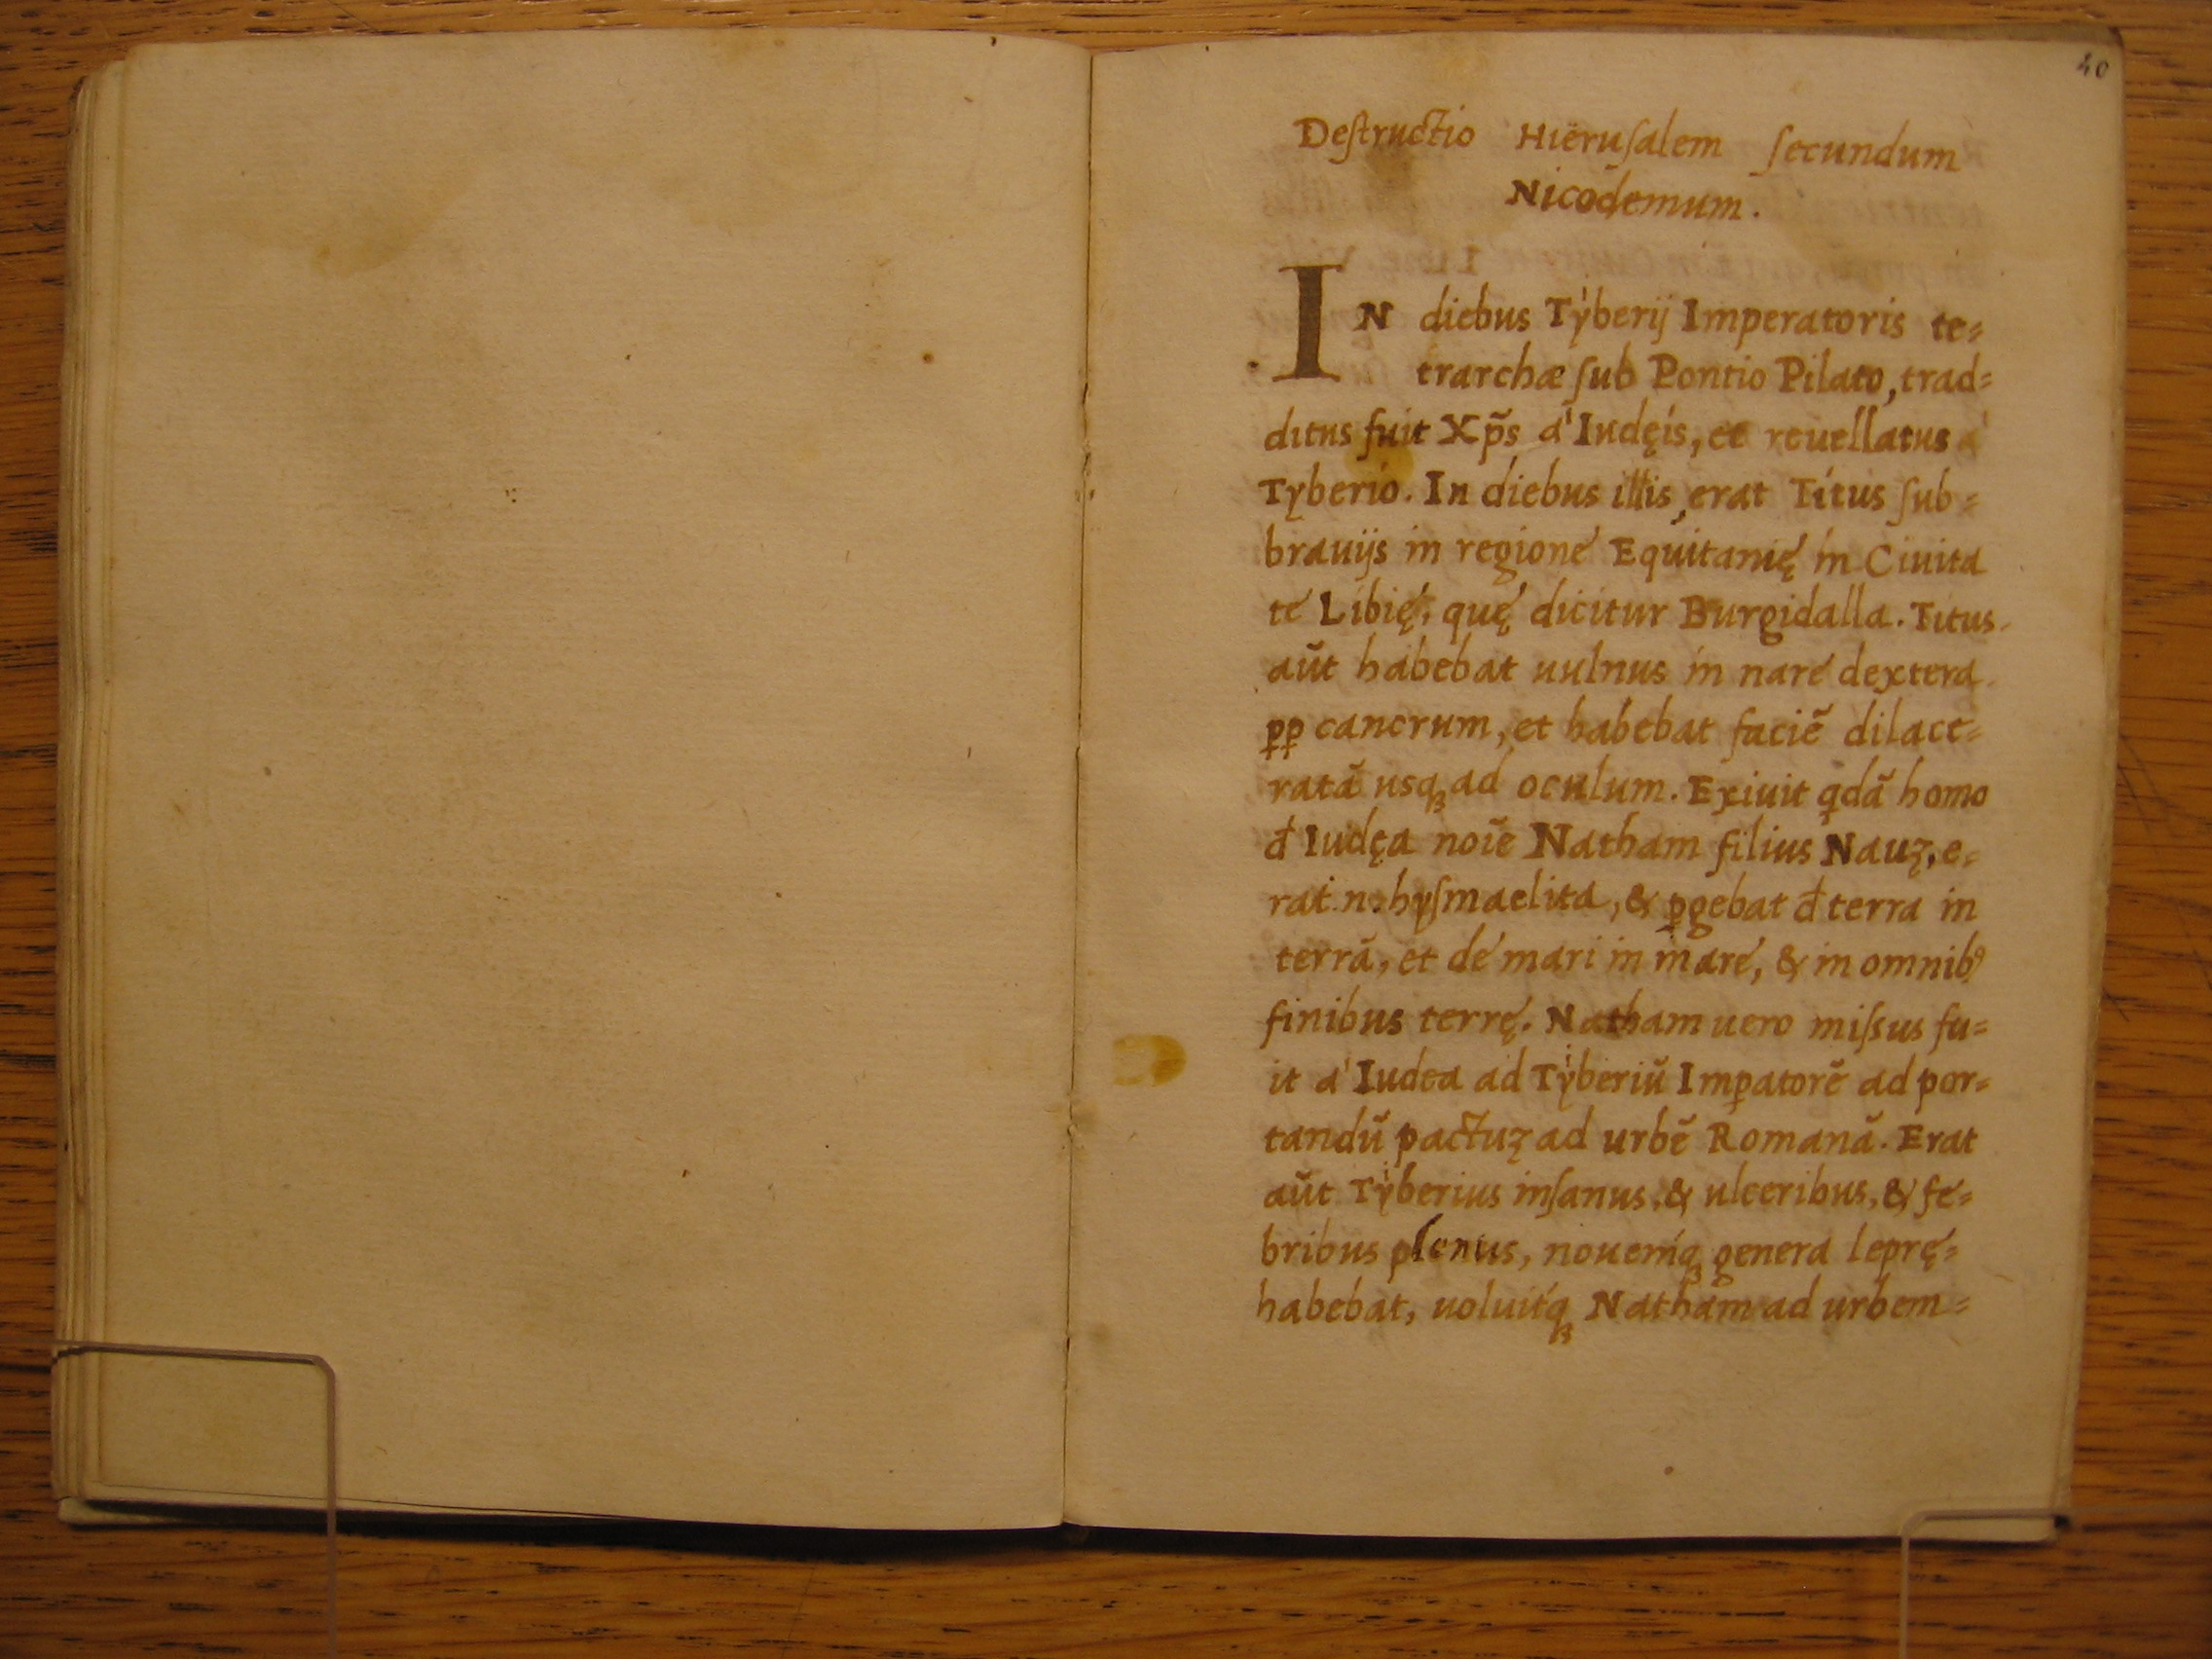 40
Destructio Hierusalem secundum
Nicodemum.
IN diebus Tÿberij Imperatoris te=
trarchæ sub Pontio Pilato, trad=
ditus fuit Xp̃s à Iudęis, et reuellatus à
Tyberio. In diebus illis, erat Titus sub=
brauijs in regione Equitanię in Ciuita
te Libię, quę dicitur Burgidalla. Titus
aũt habebat uulnus in nare dextera
ꝓꝓ cancrum, et habebat faciẽ dilace=
ratã usqꝫ ad oculum. Exiuit qdã homo
đ Iudęa noĩe Natham filius Nauꝫ, e=
rat .n. hysmaelita, & ꝑgebat đ terra in
terrã, et de mari in mare, & in omnibꝰ
finibus terrę. Natham uero missus fu=
it à Iudea ad Tÿberiũ Imꝑatorẽ ad por=
tandũ pactuꝫ ad urbẽ Romanã. Erat
aũt Tÿberius insanus, & ulceribus, & fe=
bribus plenus, nouemqꝫ genera leprę=
habebat, uoluitqꝫ Natham ad urbem=